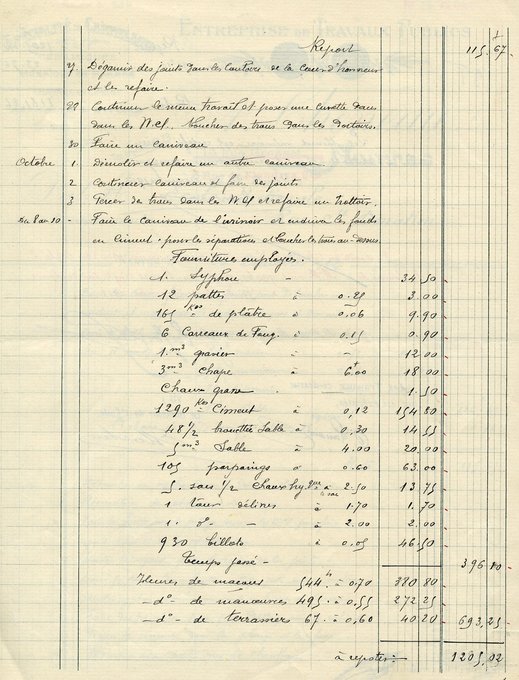 ENTREPRISE DE TRAVAUX PUBLICS
Report 115,67
27 Dégarnir des joints dans les couloirs de la Cour d'honneur
et les refaire.
29 Continuer le même travail et poser une cuvette dans
dans les W.Cl. Boucher des trous dans les Dortoirs.
30 Faire un caniveau
Octobre 1. Démolir et refaire un autre caniveau
2 Continuer caniveau et faire des joints
3 Percer de trous dans les W Cl et refaire un trottoir.
du 8 au 10 - Faire le caniveau de l'urinoir et enduire les fonds
en ciment, poser les séparations et boucher les trous au-dessous
Fournitures employées.
1. Syphon - 34.50
12 pattes à 0.25 3.00
165 Kos de plâtre à 0.06 9.90
6 Carreaux de Foug. à 0.15 0.90
1. m3 gravier - - 12.00
3 m3 Chape à 6.00 18.00
Chaux grasse 1.50
1290 Kos Ciment à 0,12 154.80
48 1/2 brouettes Sable à 0.30 14.55
5 m3 Sable à 4.00 20.00
105 parpaings à 0.60 63.00
5. sacs 1/2 Chaux hyd. à 2.50 13.75
1 à 1.70 1.70
1. do - à 2.00 2.00
930 billots à 0.05 46.50
Temps passé - 396.10
Heures de maçons 544 h à 0,70 380 80
- do - de manœuvres 495 à 0.55 272.25
- do - de terrassiers 67 à 0,60 40 20 693,25
à reporter: 1205,02